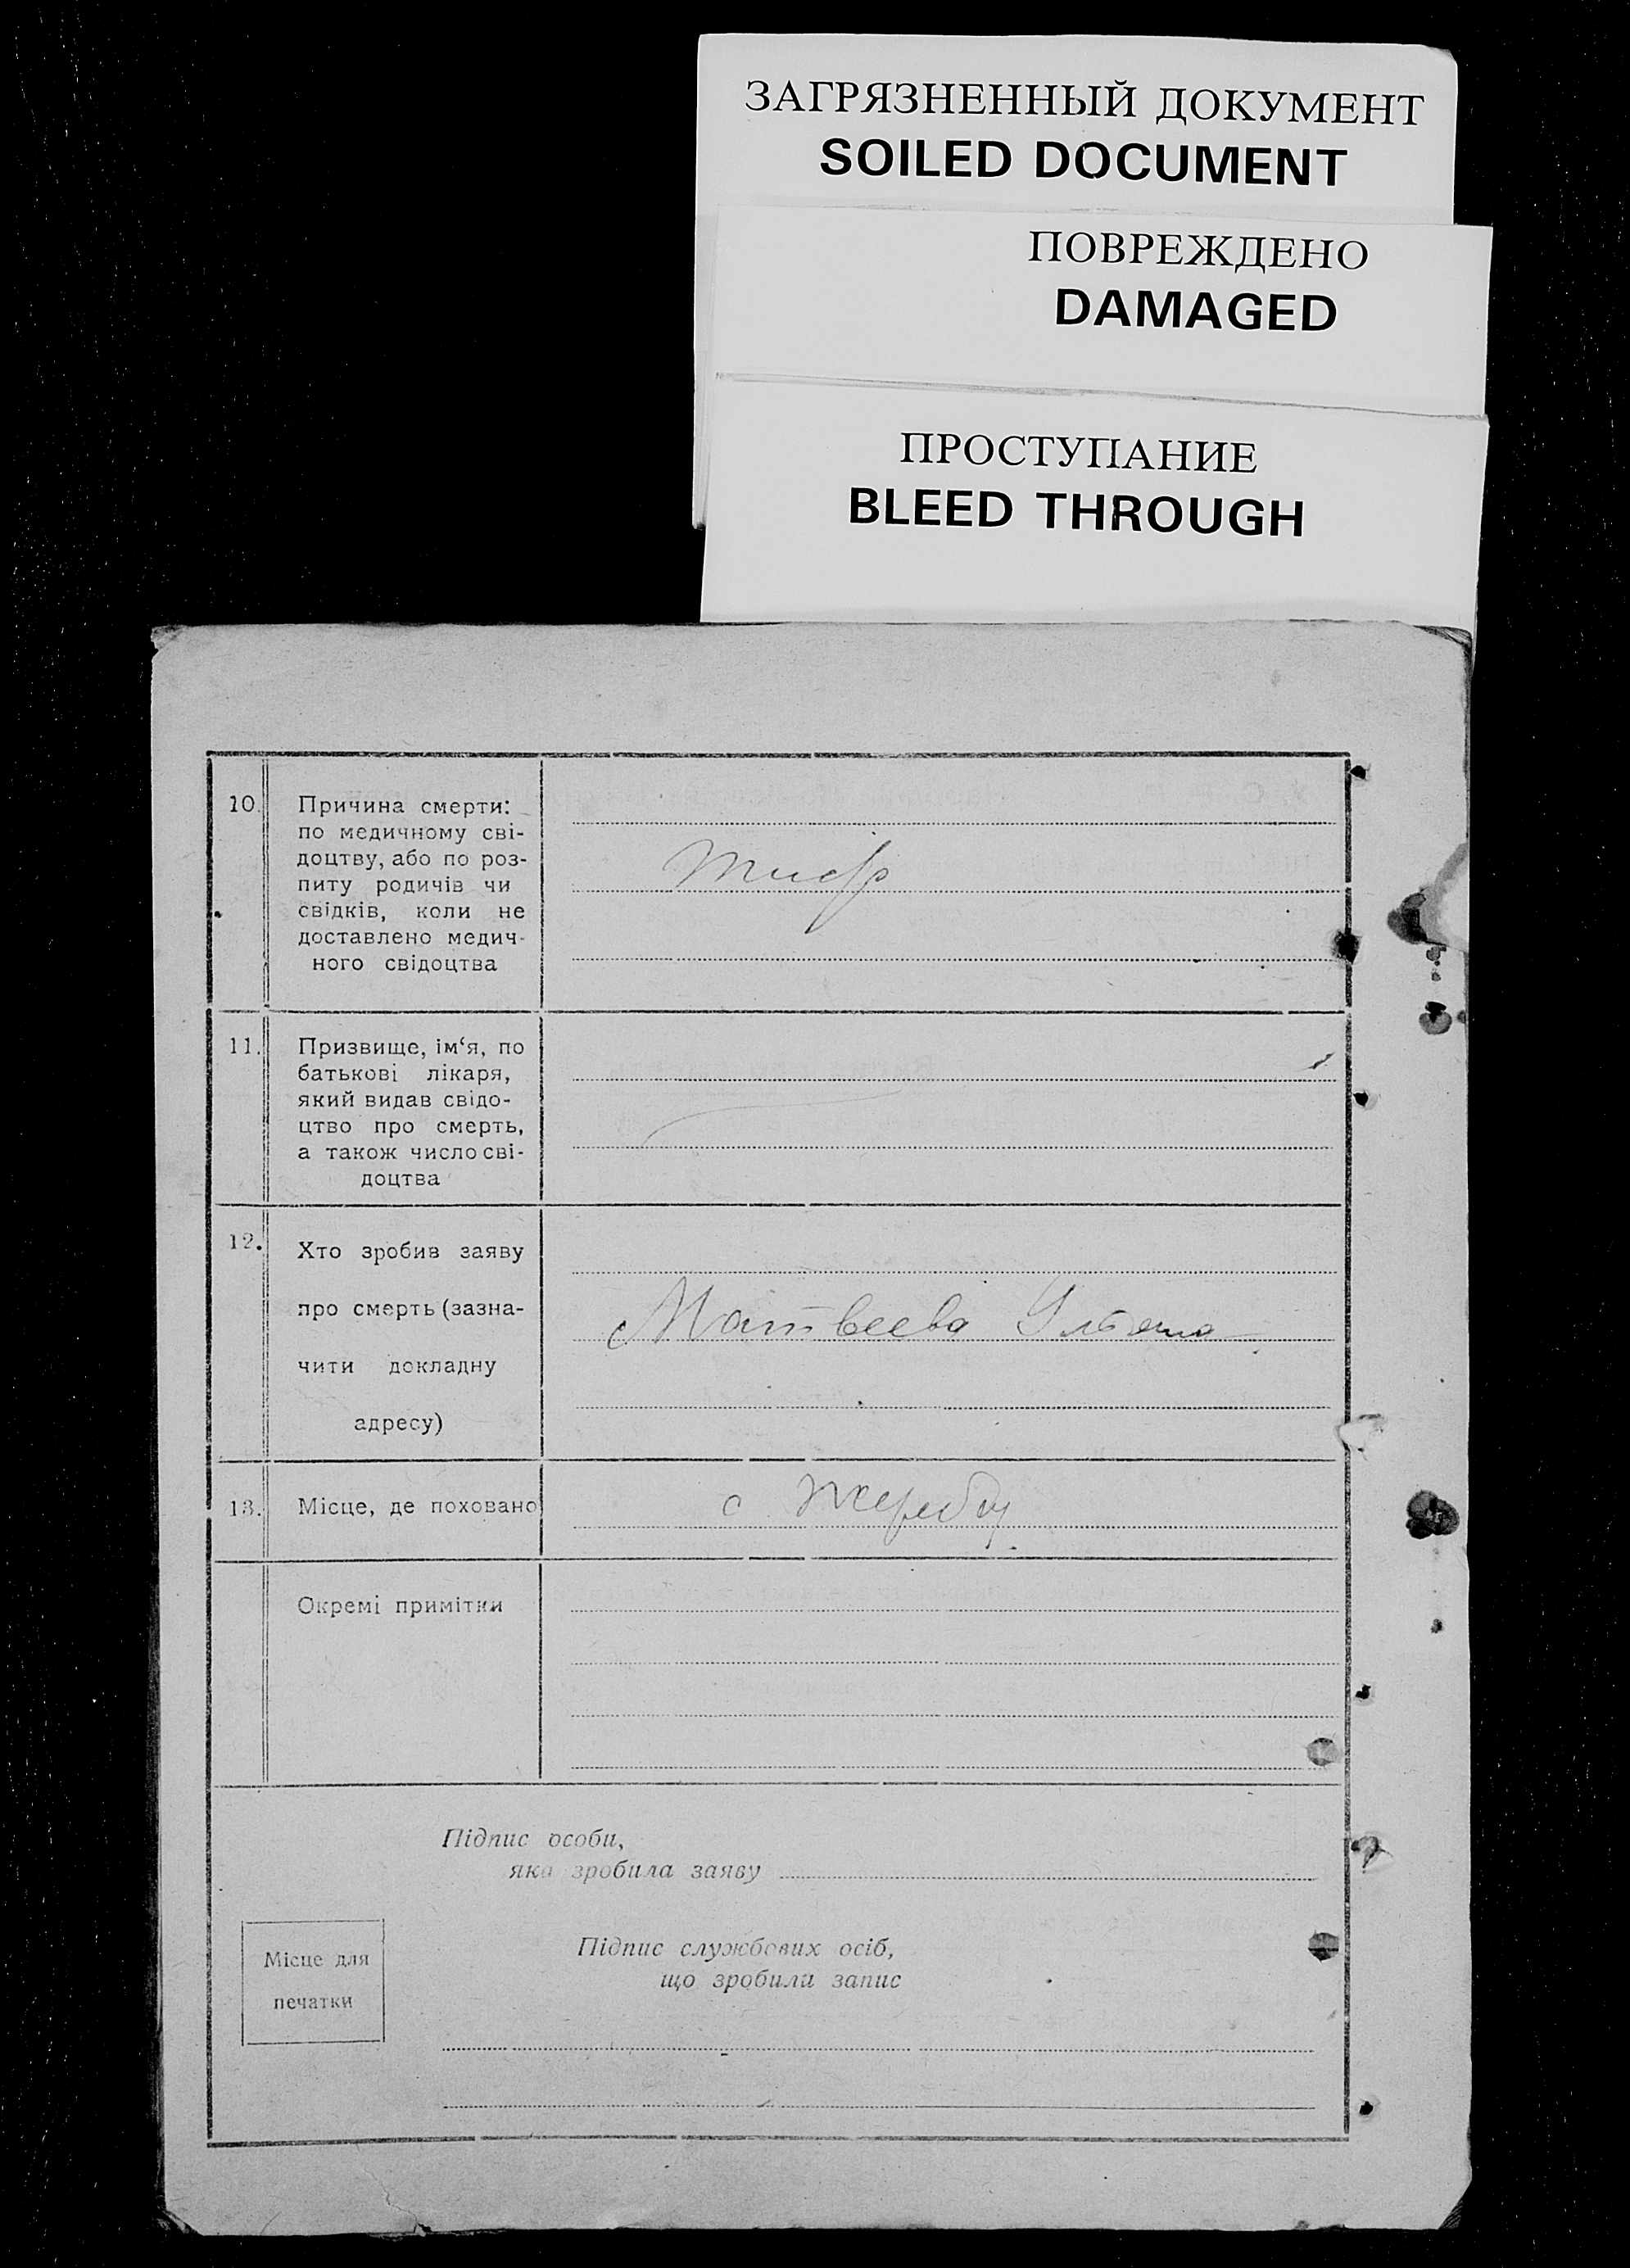 ЗАГРЯЗНЕННЫЙ ДОКУМЕНТ
SOILED DOCUMENT
ПОВРЕЖДЕНО
DAMAGED
ПРОСТУПАНИЕ
BLEED THROUGH
10. Причина смерти:
по медичному сві-
доцтву, або по роз-
питу родичів чи
свідків, коли не
доставлено медич-
ного свідоцтва
тиф
11. Призвище, ім‘я, по
батькові лікаря,
який видав свідо-
цтво про смерть,
а також число сві-
доцтва
12. Хто зробив заяву
про смерть (зазна-
чити докладну
адресу)
Матвеева
13. Місце, де поховано
с
Окремі примітки
Підпис особи,
яка зробила заяву
Місце для
печатки
Підпис службових осіб,
що зробили запис